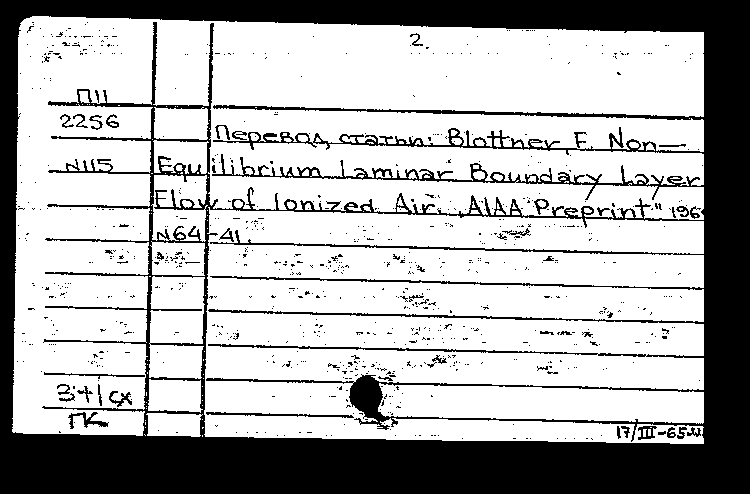 2.
П11
2256
Перевод статьи: Blottner, F. Non-
N115 Equilibrium Laminar Boundary Layer
Flow of Ionized Air. "AIAA Preprint" 196
N64-41.
3+1 сх
ГК
17/III-65